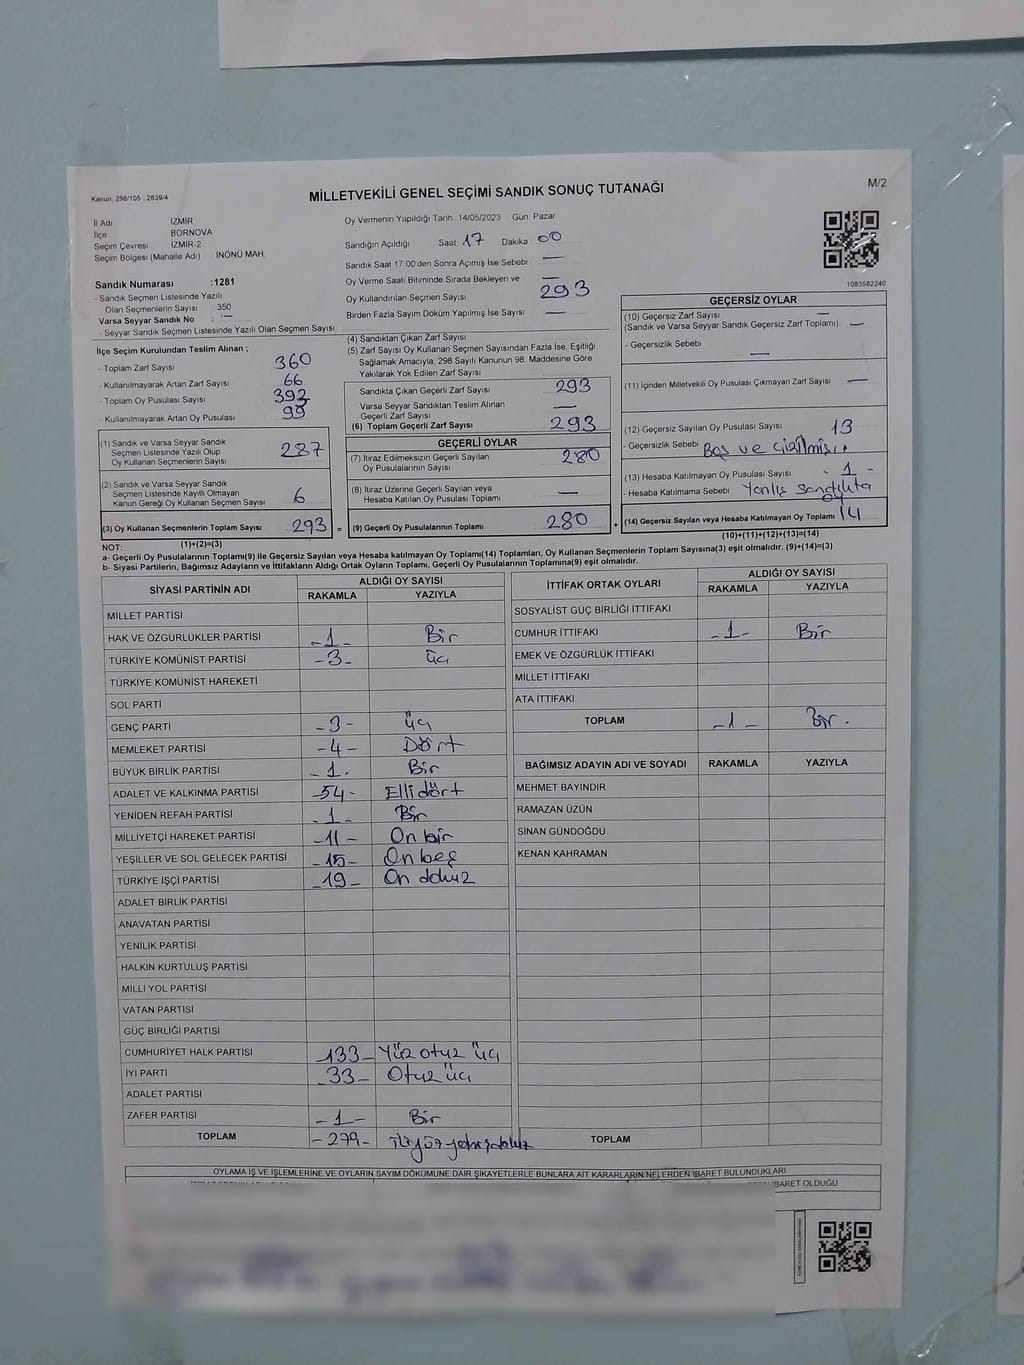 Kanun; 298/105 , 2839/4
MİLLETVEKİLİ GENEL SEÇİMİ SANDIK SONUÇ TUTANAĞI
M/2
İl Adı İZMİR
İlçe BORNOVA
Seçim Çevresi İZMİR-2
Seçim Bölgesi (Mahalle Adı) İNÖNÜ MAH.
Oy Vermenin Yapıldığı Tarih 14/05/2023 Gün. Pazar
Sandığın Açıldığı Saat 17 Dakika 00
Sandık Saat 17:00'den Sonra Açımış İse Sebebi —
Oy Verme Saati Bitiminde Sırada Bekleyen ve —
Oy Kullandırılan Seçmen Sayısı 293
Birden Fazla Sayım Döküm Yapılmış İse Sayısı —
1083582240
Sandık Numarası :1281
- Sandık Seçmen Listesinde Yazılı
Olan Seçmenlerin Sayısı 350
Varsa Seyyar Sandık No : —
- Seyyar Sandık Seçmen Listesinde Yazılı Olan Seçmen Sayısı:
İlçe Seçim Kurulundan Teslim Alınan ;
- Toplam Zarf Sayısı 360
- Kullanılmayarak Artan Zarf Sayısı 66
- Toplam Oy Pusulası Sayısı 393
- Kullanılmayarak Artan Oy Pusulası 99
(1) Sandık ve Varsa Seyyar Sandık
Seçmen Listesinde Yazılı Olup
Oy Kullanan Seçmenlerin Sayısı 287
(2) Sandık ve Varsa Seyyar Sandık
Seçmen Listesinde Kayıtlı Olmayan
Kanun Gereği Oy Kullanan Seçmen Sayısı 6
(3) Oy Kullanan Seçmenlerin Toplam Sayısı 293 =
(1)+(2)=(3)
(4) Sandıktan Çıkan Zarf Sayısı
(5) Zarf Sayısı Oy Kullanan Seçmen Sayısından Fazla İse, Eşitliği
Sağlamak Amacıyla, 298 Sayılı Kanunun 98. Maddesine Göre
Yakılarak Yok Edilen Zarf Sayısı
Sandıkta Çıkan Geçerli Zarf Sayısı 293
Varsa Seyyar Sandıktan Teslim Alınan
Geçerli Zarf Sayısı —
(6) Toplam Geçerli Zarf Sayısı 293
GEÇERLİ OYLAR
(7) İtiraz Edilmeksizin Geçerli Sayılan
Oy Pusulalarının Sayısı 280
(8) İtiraz Üzerine Geçerli Sayılan veya
Hesaba Katılan Oy Pusulası Toplamı —
(9) Geçerli Oy Pusulalarının Toplamı 280 +
GEÇERSİZ OYLAR
(10) Geçersiz Zarf Sayısı —
(Sandık ve Varsa Seyyar Sandık Geçersiz Zarf Toplamı) —
- Geçersizlik Sebebi —
(11) İçinden Milletvekili Oy Pusulası Çıkmayan Zarf Sayısı —
(12) Geçersiz Sayılan Oy Pusulası Sayısı 13
- Geçersizlik Sebebi Boş ve çizilmiş.
(13) Hesaba Katılmayan Oy Pusulası Sayısı - 1 -
- Hesaba Katılmama Sebebi Yanlış sandıkta
(14) Geçersiz Sayılan veya Hesaba Katılmayan Oy Toplamı 14
(10)+(11)+(12)+(13)=(14)
NOT:
a- Geçerli Oy Pusulalarının Toplamı(9) ile Geçersiz Sayılan veya Hesaba katılmayan Oy Toplamı(14) Toplamları, Oy Kullanan Seçmenlerin Toplam Sayısına(3) eşit olmalıdır. (9)+(14)=(3)
b- Siyasi Partilerin, Bağımsız Adayların ve İttifakların Aldığı Ortak Oyların Toplamı, Geçerli Oy Pusulalarının Toplamına(9) eşit olmalıdır.
SİYASİ PARTİNİN ADI ALDIĞI OY SAYISI
RAKAMLA YAZIYLA
MİLLET PARTİSİ
HAK VE ÖZGÜRLÜKLER PARTİSİ -1- Bir
TÜRKİYE KOMÜNİST PARTİSİ -3- üç
TÜRKİYE KOMÜNİST HAREKETİ
SOL PARTİ
GENÇ PARTİ -3- üç
MEMLEKET PARTİSİ -4- Dört
BÜYÜK BİRLİK PARTİSİ -1- Bir
ADALET VE KALKINMA PARTİSİ -54- Elli dört
YENİDEN REFAH PARTİSİ -1- Bir
MİLLİYETÇİ HAREKET PARTİSİ -11- On bir
YEŞİLLER VE SOL GELECEK PARTİSİ -15- On beş
TÜRKİYE İŞÇİ PARTİSİ -19- On dokuz
ADALET BİRLİK PARTİSİ
ANAVATAN PARTİSİ
YENİLİK PARTİSİ
HALKIN KURTULUŞ PARTİSİ
MİLLİ YOL PARTİSİ
VATAN PARTİSİ
GÜÇ BİRLİĞİ PARTİSİ
CUMHURİYET HALK PARTİSİ 133- Yüz otuz üç
İYİ PARTİ -33- Otuz üç
ADALET PARTİSİ
ZAFER PARTİSİ -1- Bir
TOPLAM -279-
İTTİFAK ORTAK OYLARI ALDIĞI OY SAYISI
RAKAMLA YAZIYLA
SOSYALİST GÜÇ BİRLİĞİ İTTİFAKI
CUMHUR İTTİFAKI -1- Bir
EMEK VE ÖZGÜRLÜK İTTİFAKI
MİLLET İTTİFAKI
ATA İTTİFAKI
TOPLAM -1- Bir.
BAĞIMSIZ ADAYIN ADI VE SOYADI RAKAMLA YAZIYLA
MEHMET BAYINDIR
RAMAZAN ÜZÜN
SİNAN GÜNDOĞDU
KENAN KAHRAMAN
TOPLAM
OYLAMA İŞ VE İŞLEMLERİNE VE OYLARIN SAYIM DÖKÜMÜNE DAİR ŞİKAYETLERLE BUNLARA AİT KARARLARIN NELERDEN İBARET BULUNDUKLARI
İBARET OLDUĞU